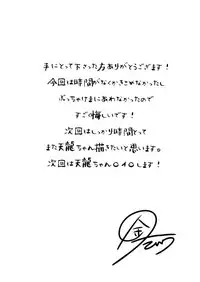 手にとって下さった方ありがとうございます!
今回は時間がなくかきこめなかったし
ぶっちゃけまにあわなかったので
すごく悔しいです!
次回はしっかり時間とって
また天龍ちゃん描きたいと思います。
次回は天龍ちゃん〇イ〇します!
金